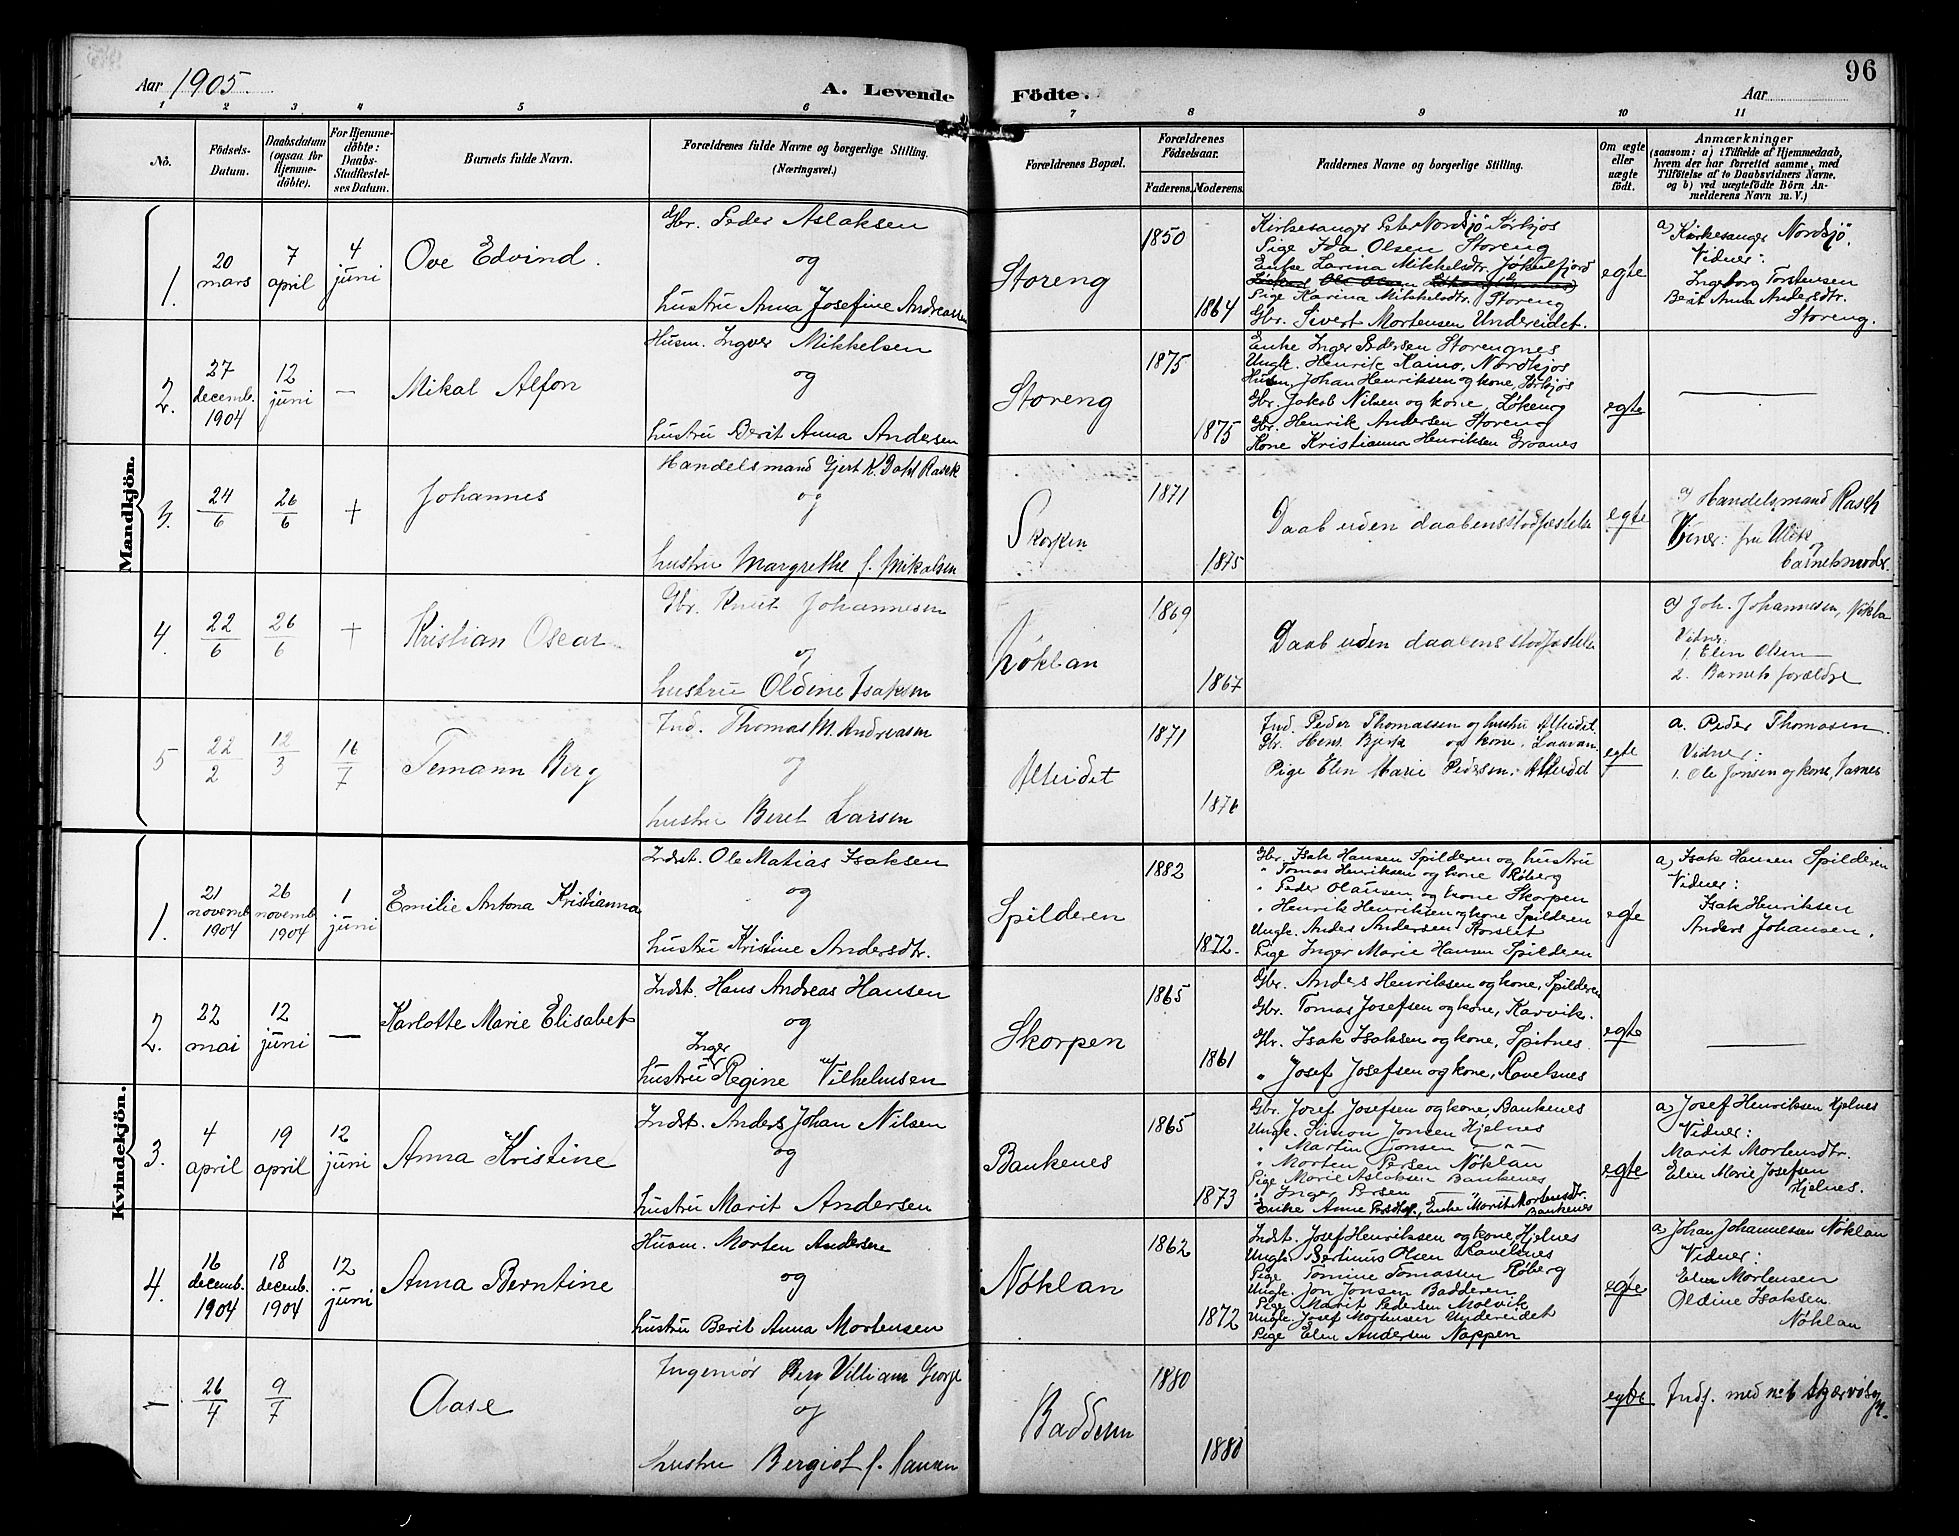 96
Aar 1905.
A. Levende Födte.
Aar
1 2 3 4 5 6 7 8 9 10 11
No.
Födsels-Datum.
Daabsdatum (ogsaa for Hjemmedöbte).
For Hjemmedöbte: Daabs-Stadfæstelses Datum.
Barnets fulde Navn.
Forældrenes fulde Navne og borgerlige Stilling. (Næringsvei.)
Forældrenes Bopæl.
Forældrenes Födselsaar.
Faderens. Moderens.
Faddernes Navne og borgerlige Stilling.
Om ægte eller uægte födt.
Anmærkninger
(saasom: a) i Tilfælde af Hjemmedaab, hvem der har forrettet samme, med Tilföielse af to Daabsvidners Navne, og b) ved uægtefödte Börn Anmelderens Navn m. V.)
Mandkjön.
1.
20 mars
7 april
4 juni
Ove Edvind.
Gbr. Peder Aslaksen
og
hustru Anna Josefine Andreassen
Storeng
1850
1864
Kirkesanger Peter Nordsjö Sørkjos
Pige Ida Olsen Storeng
Enke Larina Mikkelsdtr. Jøkelfjord
Pige Karina Mikkelsdtr. Storeng
Gbr. Sivert Mortensen Undereidet.
egte
a) Kirkesanger Nordsjö.
Vidner:
Ingeborg Torstensen
Berit Anna Andersdtr.
Storeng.
2.
27 decemb. 1904
12 juni
—
Mikal Alfon
Husm. Ingver Mikkelsen
og
hustru Berit Anna Andersen
Storeng
1875
1875
Enke Inger Pedersen Storengnes
Ungk. Henrik Kaino, Nordkjos
Husm. Johan Henriksen og kone, Sørkjos
Gbr. Jakob Nilsen og kone, Løkeng
Gbr. Henrik Andersen Storeng
Kone Kristianna Henriksen
egte
—
3.
24/6
26/6
+
Johannes
Handelsmand Gjert K. Dahl Rasch
og
hustru Margrethe f. Mikalsen
Skorpen
1871
1875
Daab uden daabensstadfæstelse
egte
a) Handelsmand Rasch
fru Ulik
og
barnets moder.
4.
22/6
26/6
+
Kristian Oscar
Gbr. Knut Johannesen
og
hustru Oldine Isaksen
Nøklan
1869
1867
Daab uden daabensstadfæstelse
a) Joh. Johannesen, Nøklan
Vidner
1. Elen Olsen
2. Barnets forældre
5
22/2
12/3
16/7
Temann Berg
Ind. Thomas M. Andreasen
og
hustru Beret Larsen
Alteidet
1871
1876
Ind. Peder Thomassen og hustru Alteidet.
Gbr. Hens. Bjerk og kone.
Pige Elen Marie Pedersen. Alteidet
egte
a. Peder Thomasen.
Vidner:
1. Ole Jonsen og kone,
Kvindekjön.
1.
21 novemb. 1904
26 novemb. 1904
1 juni
Emilie Antona Kristianna
Indst. Ole Matias Isaksen
og
hustru Kristine Andersdtr.
Spilderen
1882
1872.
Gbr. Isak Hansen Spilderen og hustru
" Tomas Henriksen og kone Røberg
" Peder Olausen og kone Skorpen
" Henrik Henriksen og kone Spilderen
Ungk. Anders Andersen Storslet
Pige Inger Marie Hansen Spilderen
egte
a) Isak Hansen Spilderen
Vidner:
Isak Henriksen
Anders Johansen.
2.
22 mai
12 juni
—
Karlotte Marie Elisabet
Indst. Hans Andreas Hansen
og
hustru Inger Regine Vilhelmsen
Skorpen
1865
1861
Gbr. Anders Henriksen og kone, Spilderen
Gbr. Tomas Josefsen og kone, Karvik.
Gbr. Isak Isaksen og kone, Spitnes
" Josef Josefsen og kone, Ravelsnes
egte
—
3.
4 april
19 april
12 juni
Anna Kristine
Indst. Anders Johan Nilsen
og
hustru Marit Andersen
Bankenes
1865
1873
Gbr. Josef Josefsen og kone, Bankenes
Ungk. Simon Jonsen Hjelnes
" Martin Jonsen — " —
" Morten Persen Nøklan
Pige Marie Aslaksen Bankenes
" Inger Persen — " —
Enke Anne Persdtr., Enke Marit Mortensdtr.
Bankenes
egte
a) Josef Henriksen Hjelnes
Vidner:
Marit Mortensdtr.
Elen Marie Josefsen
Hjelnes.
4.
16 decemb. 1904
18 decemb. 1904
12 juni
Anna Berntine
Husm. Morten Andersen
og
hustru Berit Anna Mortensen
Nøklan
1862
1872
Indst. Josef Henriksen og kone, Hjelnes
Ungk. Bertinus Olsen Ravelsnes
Pige Tomine Tomassen Røberg
Ungk. Jon Jonsen Badderen
Pige Marit Pedersen Molvik
Ungk. Josef Mortensen Undereidet
Pige Elen Andersen Nappen
egte
a) Johan Johannessen Nøklan
Vidner:
Elen Mortensen
Oldine Isaksen
Nøklan
—
26/4
9/7
Aase
Ingeniør Berg Villiam George
og
hustru Bergiot f. Hansen
Badderen
1880
1880
egte
Indf. med no 6 Skjærvö sgn.